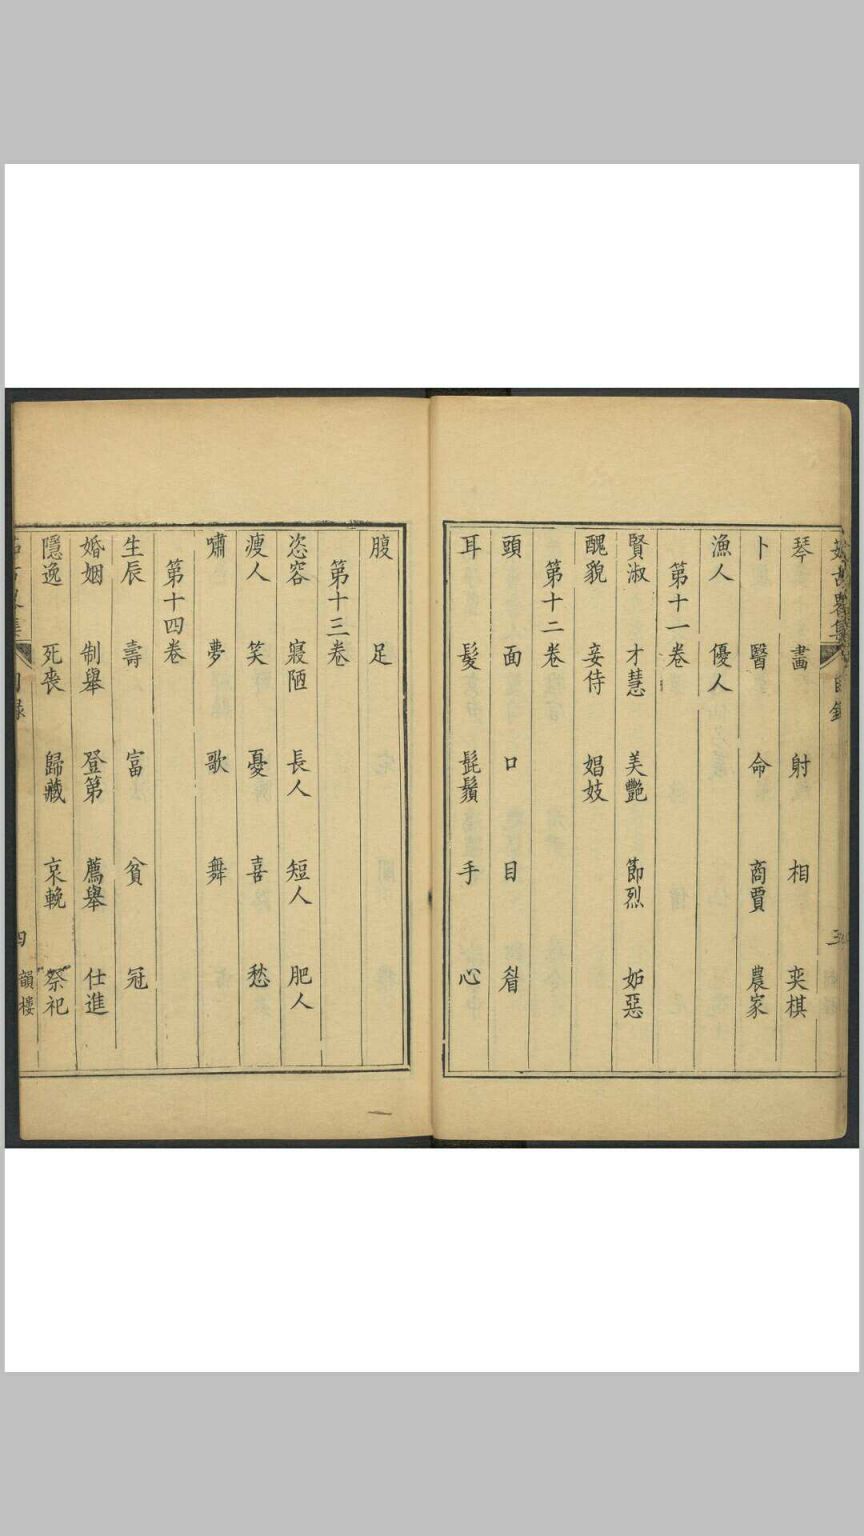 琴 畵 射 相 奕棋
卜 醫 命 商賈 農家
漁人 優人
第十一卷
賢淑 才慧 美艷 節烈 妬惡
醜貌 妾侍 娼妓
第十二卷
頭 面 口 目 眉
耳 髮 髭鬚 手 心
腹 足
第十三卷
恣容 寢陋 長人 短人 肥人
瘦人 笑 憂 喜 愁
嘯 夢 歌 舞
第十四卷
生辰 壽 富 貧 冠
婚姻 制舉 登第 薦舉 仕進
隱逸 死喪 歸藏 哀輓 祭祀
四 韻樓